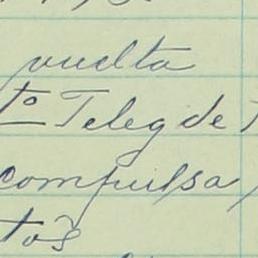 vuelta
to Teleg de
compulsa,
tos